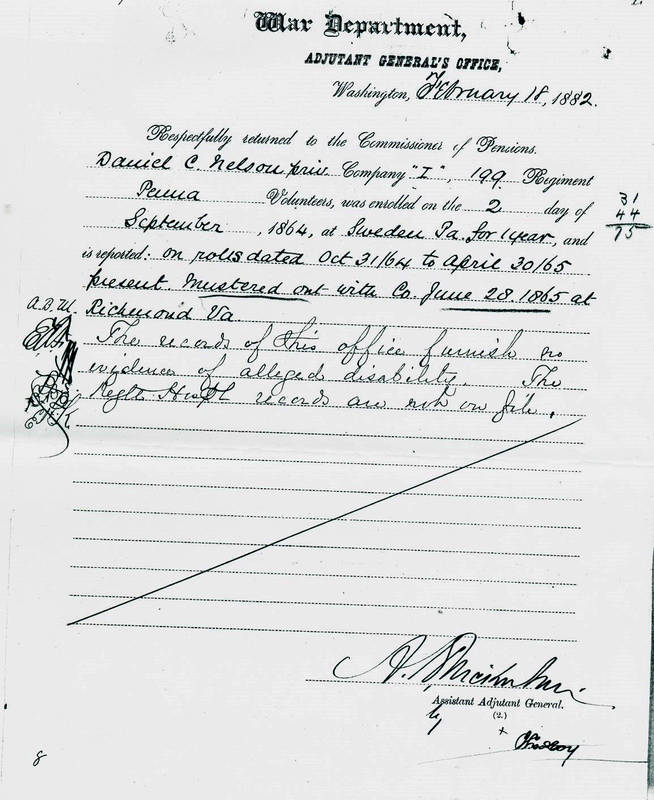 War Department,
ADJUTANT GENERAL'S OFFICE,
Washington, February 18, 1882.
Respectfully returned to the Commissioner of Pensions.
Daniel C. Nelson priv Company "I", 199 Regiment
Penna Volunteers, was enrolled on the 2 day of
31
44
75
September, 1864, at Sweden Pa. for 1 year, and
is reported: on rolls dated Oct 31/64 to April 30/65
present. Mustered out with Co. June 28. 1865 at
Richmond Va
The records of this office furnish no
evidence of alleged disability. The
Regtl Hospl records are not on file.
Assistant Adjutant General.
(2.)
by
8